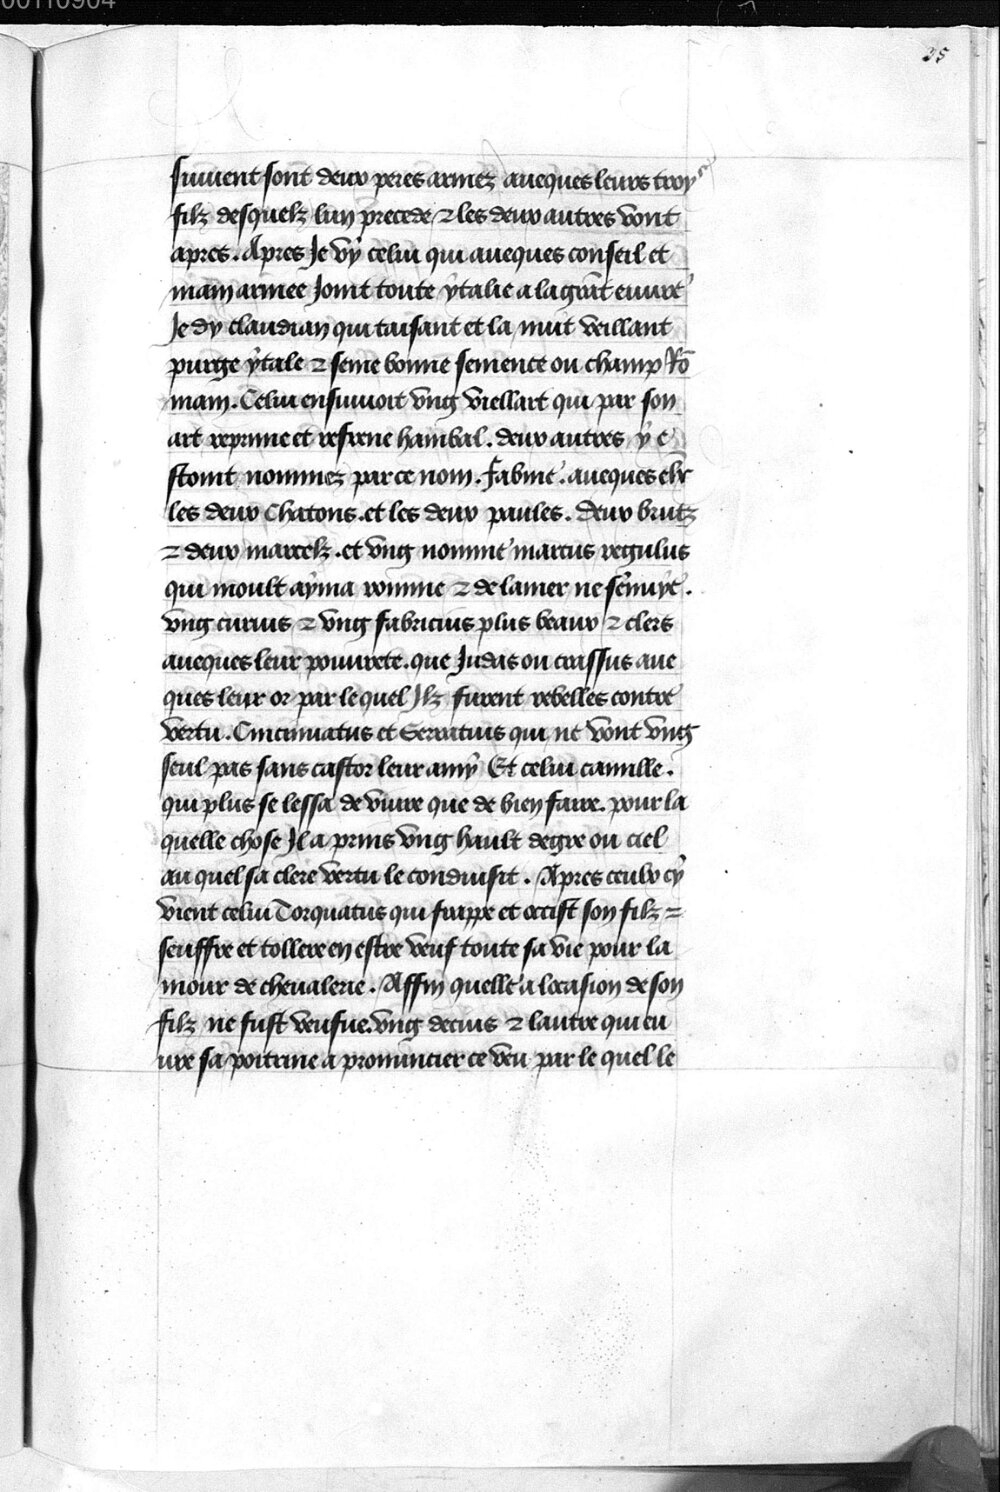 00110904
35
suiuent sont deux peres armez auecques leurs troys
filz desquelz lun precede ⁊ les deux autres vont
apres. Apres Je vy celui qui auecques conseil et
main armee Joint toute ytalie a la grãt euure
Je dy claudian qui taisant et la nuit veillant
purge ytale ⁊ seme bonne semence ou champ Rõ
main. Celui ensuiuoit vng viellart qui par son
art reprime et refrene hanibal. deux autres y e
stoint nommez par ce nom. fabine. auecques
les deux Chatons. et les deux paules. Deux brutz
⁊ deux marcelz. et vng nomme marcus regulus
qui moult ayma romme ⁊ de lamer ne sẽnuye.
vng curius ⁊ vng fabricius plus beaux ⁊ clers
auecques leur pouurete. que Judas ou crassus aue
ques leur or par le quel Jlz furent rebelles contre
vertu. Cincinnatus et Serratius qui ne vont vng
seul pas sans castor leur amy Et celui camille.
qui plus se lessa de viure que de bien faire. pour la
quelle chose Jl a prins vng hault degre ou ciel
au quel sa clere vertu le conduisit. Apres ceulx cy
vient celui Torquatus qui frappe et occist son filz ⁊
seuffre et tollere en estre veuf toute sa vie pour la
mour de cheualerie. Affin quelle a locasion de son
filz ne fust veufue. vng decius ⁊ lautre qui eu
ure sa poitrine a pronuncier ce veu par le quel le